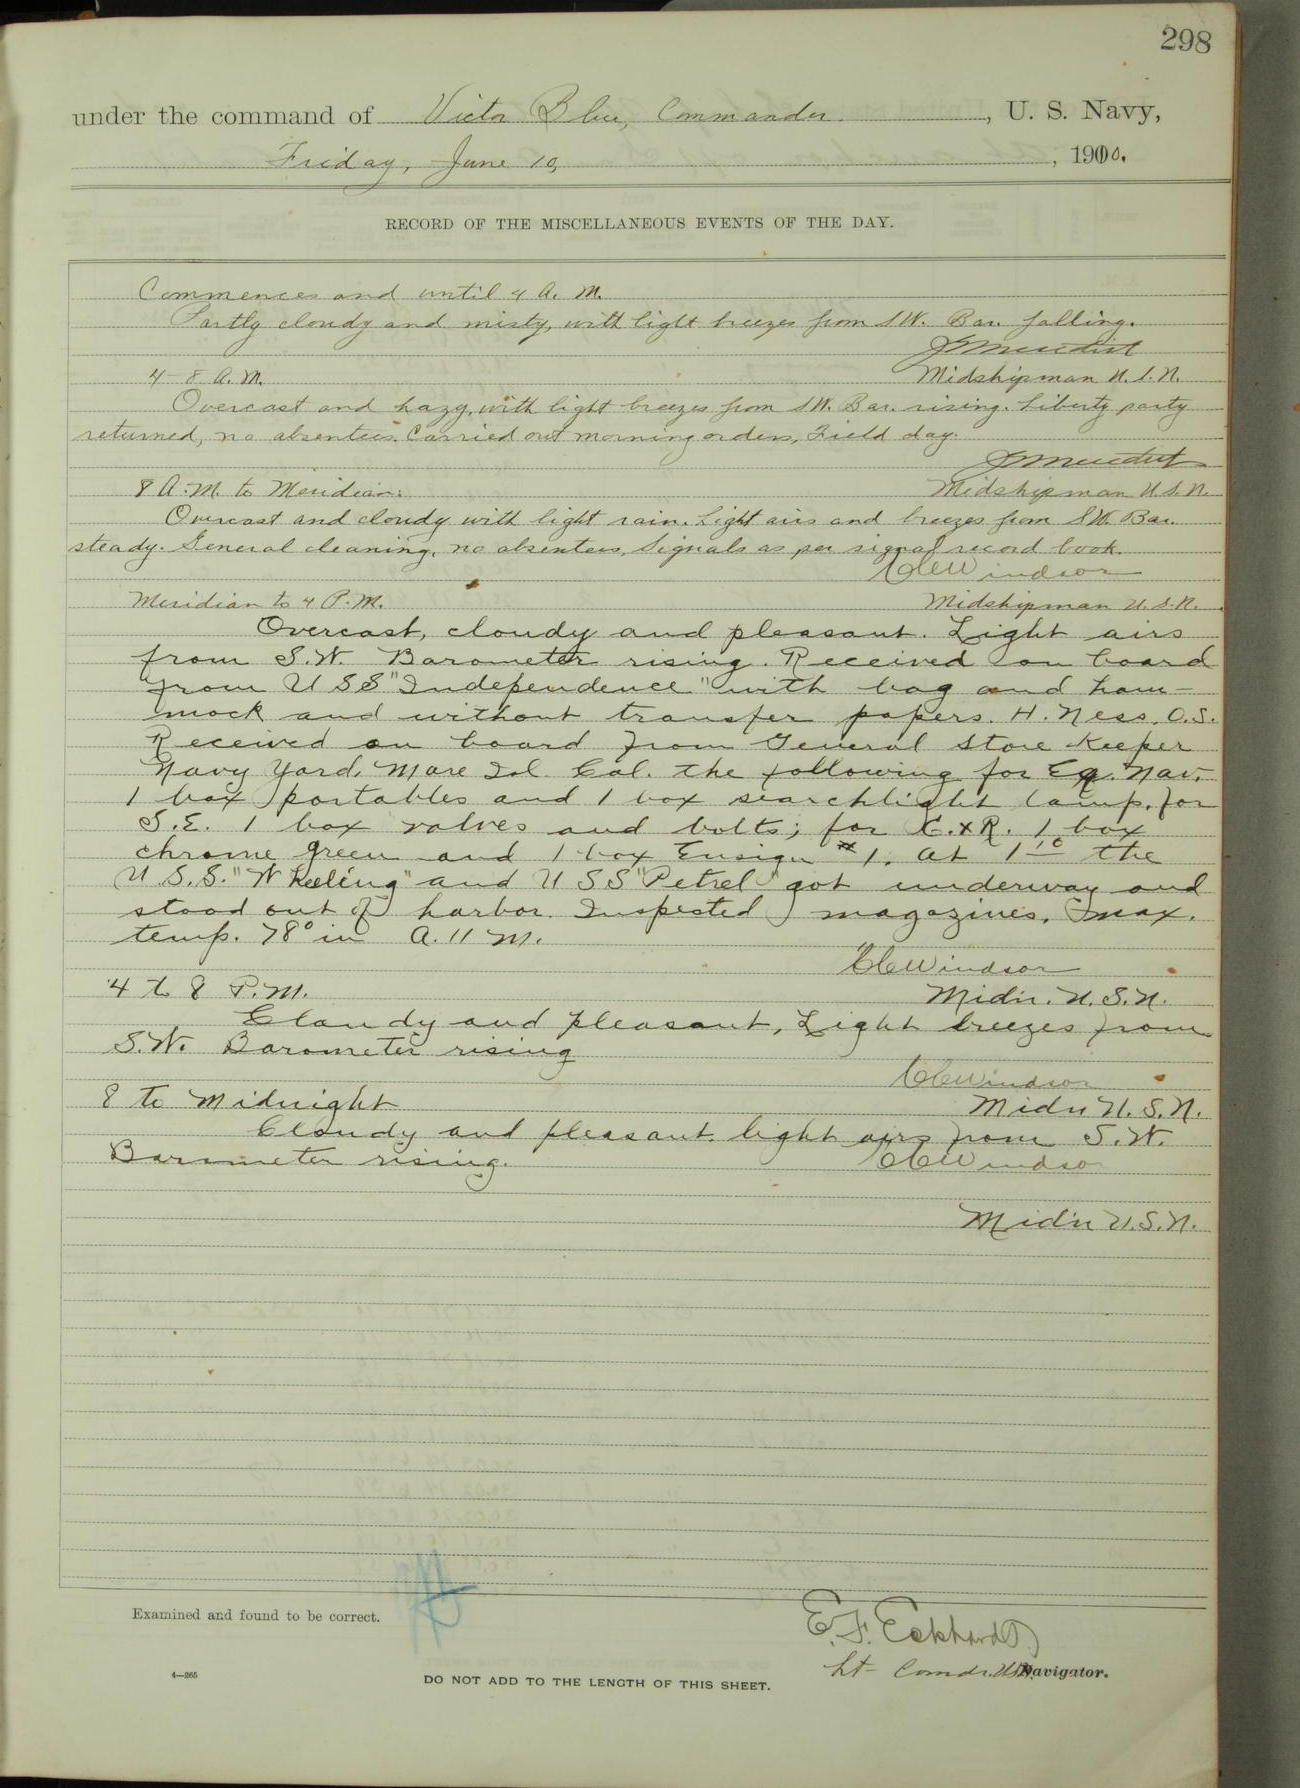 298
under the command of Victor Blue, Commander. , U. S. Navy,
Friday, June 10, , 1910.
RECORD OF THE MISCELLANEOUS EVENTS OF THE DAY.
Commences and until 4 A. M.
Partly cloudy and misty, with light breezes from S.W. Bar. falling.
4-8 A.M. Midshipman U.S.N.
Overcast and hazy, with light breezes from S.W. Bar. rising. Liberty party
returned, no absentees. Carried out morning orders, Field day.
8 A.M. to Meridian: Midshipman U.S.N.
Overcast and cloudy with light rain. Light airs and breezes from S.W. Bar.
steady. General cleaning, no absentees. Signals as per signal record book.
CCWindsor
Meridian to 4 P.M. Midshipman U.S.N.
Overcast, cloudy and pleasant. Light airs
from S.W. Barometer rising. Received on board
from U S S "Independence" with bag and ham-
mock and without transfer papers. H. Ness, O.S.
Received on board from General Store Keeper
Navy Yard, Mare Isl. Cal. the following for Eq. Nav.
1 box portables and 1 box searchlight lamp, for
S.E. 1 box valves and bolts; for C. & R. 1 box
chrome green and 1 box Ensign #1. At 1 10 the
U.S.S. "Wheeling" and U S S "Petrel" got underway and
stood out of harbor. Inspected magazines, max.
temp. 78° in A. 11 M.
CCWindsor
4 to 8 P.M. Mid'n. U.S.N.
Cloudy and pleasant, Light breezes from
S.W. Barometer rising
CCWindsor
8 to Midnight Midn U.S.N.
Cloudy and pleasant. light airs from S.W.
Barometer rising. CCWindsor
Mid'n U.S.N.
Examined and found to be correct.
E. F. Eckhardt
Lt- Comdr. U.S.N. Navigator.
4—265
DO NOT ADD TO THE LENGTH OF THIS SHEET.